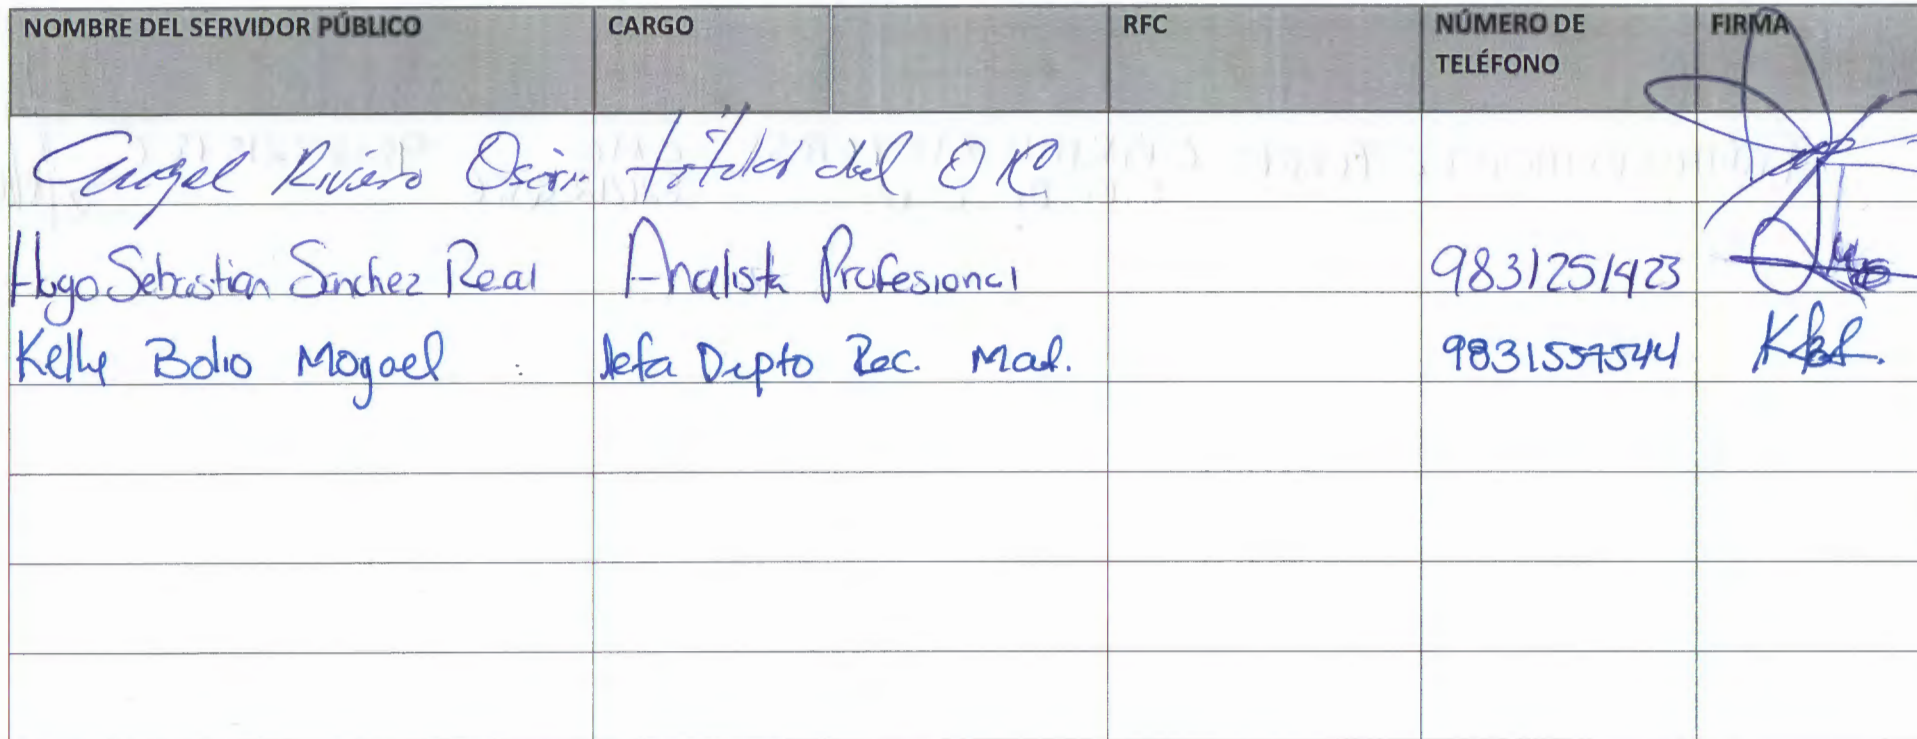 NOMBRE DEL SERVIDOR PÚBLICO CARGO RFC NÚMERO DE TELÉFONO FIRMA
Angel Rivero Osorio titular del OIC
Hugo Sebastian Sanchez Real Analista Profesional 9831251423
Kelly Bolio Mogoel Jefa Depto Rec. Mat. 9831557544